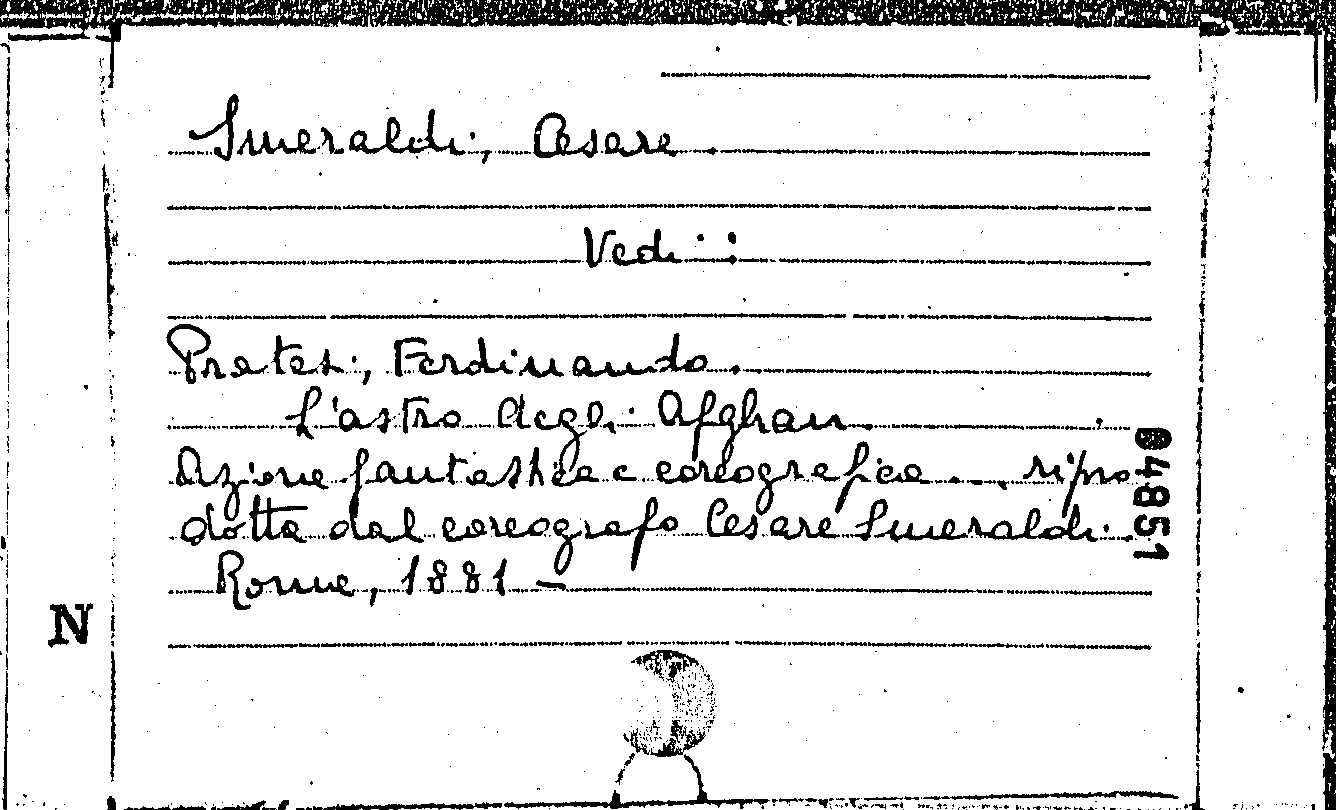 Smeraldi, Cesare.
Vedi:
Pratesi, Ferdinando.
L'astro degli Afghan.
Azione fantastica e coreografica ... ripro
dotta dal coreografo Cesare Smeraldi.
Roma, 1881 –
04851
N